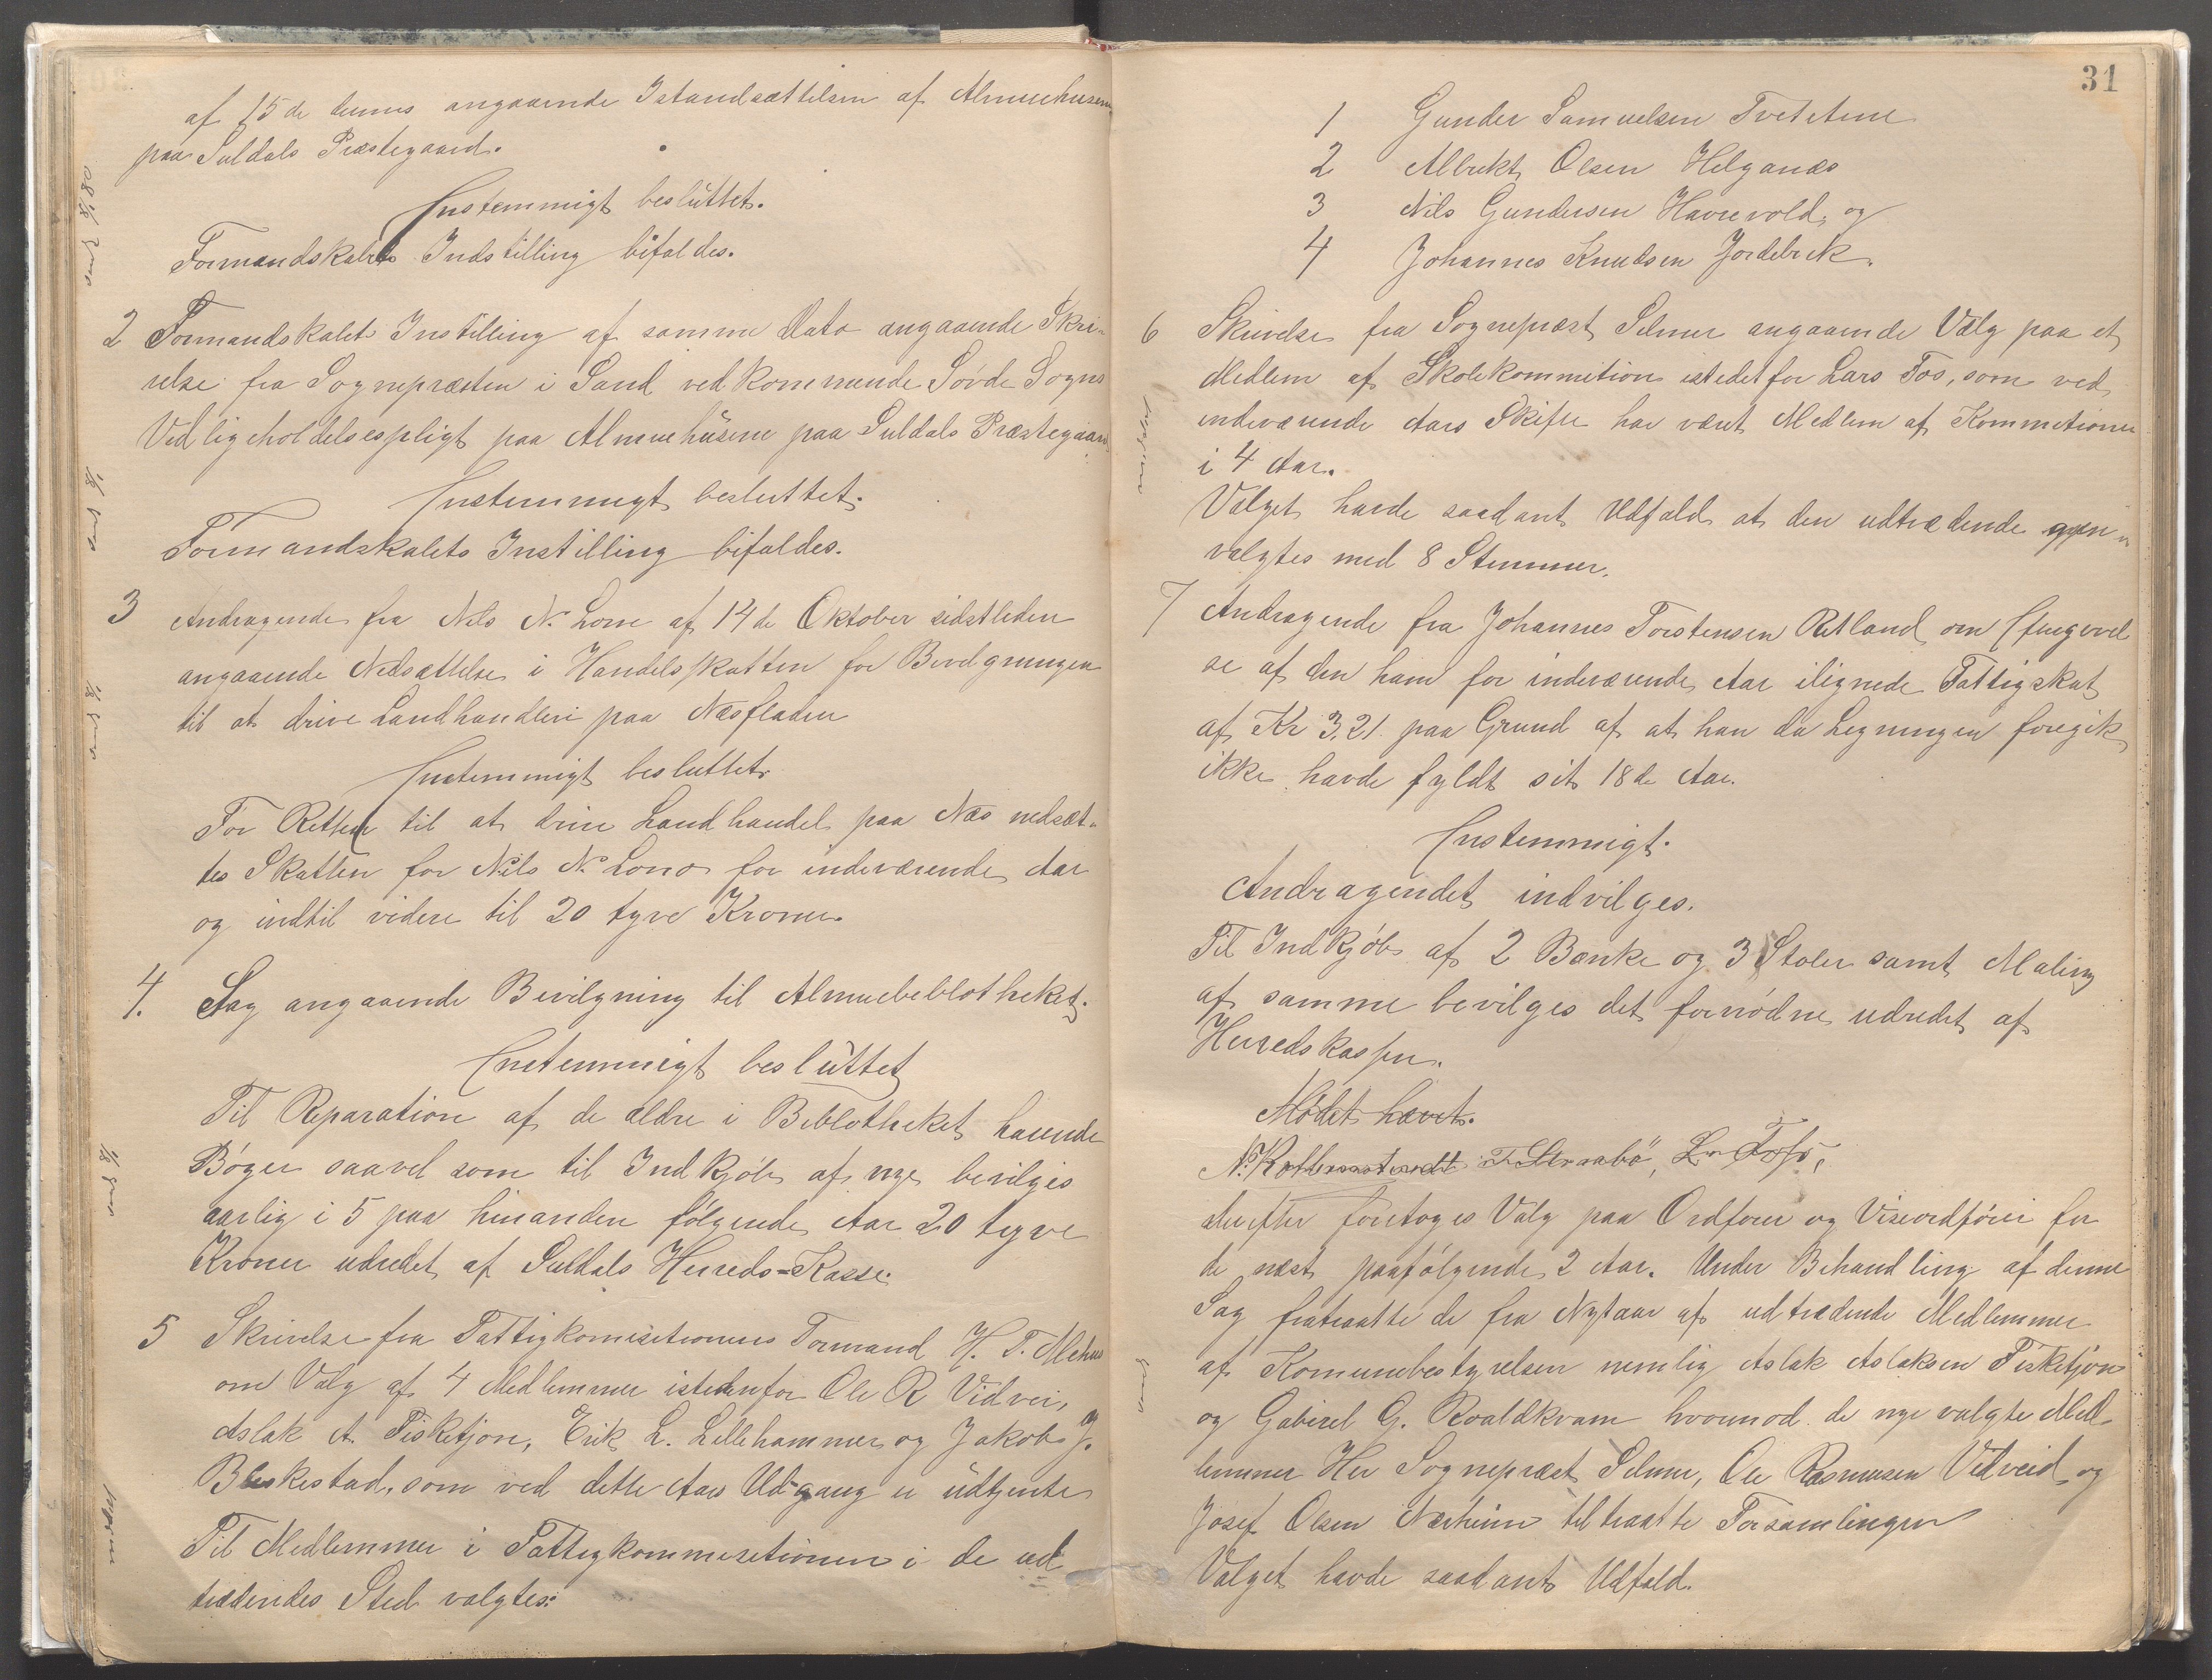 af 15de dennes angaaende Istandsættelsen af Almuehusene
paa Suldals Præstegaard.
Enstemmigt besluttet.
Formandskabets Indstilling bifaldes.
2 Formandskabets Instilling af samme Dato angaaende Skri-
velse fra Sognepræsten i Sand vedkommende Søvde Sogns
Vedligeholdelsespligt paa Almuehusene paa Suldals Præstegaard
Enstemmigt besluttet.
Formandskabets Instilling bifaldes.
3 Andragende fra Nils N. Lone af 14de Oktober sidstleden
angaaende Nedsættelse i Handelsskatten for Bevilgningen
til at drive Landhandleri paa Næsfladen
Enstemmigt besluttet.
For Retten til at drive Landhandel paa Næs nedsæt-
tes Skatten for Nils N. Lone for indeværende Aar
og indtil videre til 20 tyve Kroner.
4. Sag angaaende Bevilgning til Almuebeblotheket.
Enstemmigt besluttet
Til Reparation af de ældre i Beblotheket havende
Bøger saavel som til Indkjøb af nye bevilges
aarlig i 5 paa hinanden følgende Aar 20 tyve
Kroner udredet af Suldals Herreds-Kasse.
5 Skrivelse fra Fattigkomisitionens Formand H. T. Mehus
om Valg af 4 Medlemmer istedenfor Ole R Vidvei,
Aslak A. Fisketjøn, Erik L. Lillehammer og Jakob J.
Bleskestad, som ved dette Aars Udgang er udtjente
Til Medlemmer i Fattigkommisitionen i de ud
trædendes Sted valgtes:
31
1 Gunder Samuelsen Tveteten
2 Albrekt Olsen Helganæs
3 Nils Gundersen Havrevold, og
4 Johannes Knudsen Jordebrek.
6 Skrivelse fra Sognepræst Selmer angaaende Valg paa et
Medlem af Skolekommition istedetfor Lars Fos, som ved
indeværende Aars Skifte har været Medlem af Kommitionen
i 4 Aar.
Valget havde saadant Udfald at den udtrædende gjen-
valgtes med 8 Stemmer.
7 Andragende fra Johannes Torstensen Ritland om Eftergivel
se af den ham for indeværende Aar ilignede Fattigskat
af Kr 3,21 paa Grund af at han da Legningen foregik
ikke havde fyldt sit 18de Aar.
Enstemmigt.
Andragendet indvilges.
Til Indkjøb af 2 Bænke og 3 Stoler samt Maling
af samme bevilges det fornødne udredet af
Herredskassen.
Mødet hævet.
N. Kolbenstvedt T Straabø, L. Foss,
derefter foretoges Valg paa Ordfører og Viseordfører for
de næst paafølgende 2 Aar. Under Behandling af denne
Sag fratraatte de fra Nytaar af udtrædende Medlemmer
af Komunebestyrelsen nemlig Aslak Aslaksen Fisketjøn
og Gabriel G. Roaldkvam hvorimod de nye valgte Med-
lemmer Her Sognepræst Selmer, Ole Rasmusen Vedveid og
Josef Olsen Nærheim tiltraatte Forsamlingen
Valget havde saadant Udfald.